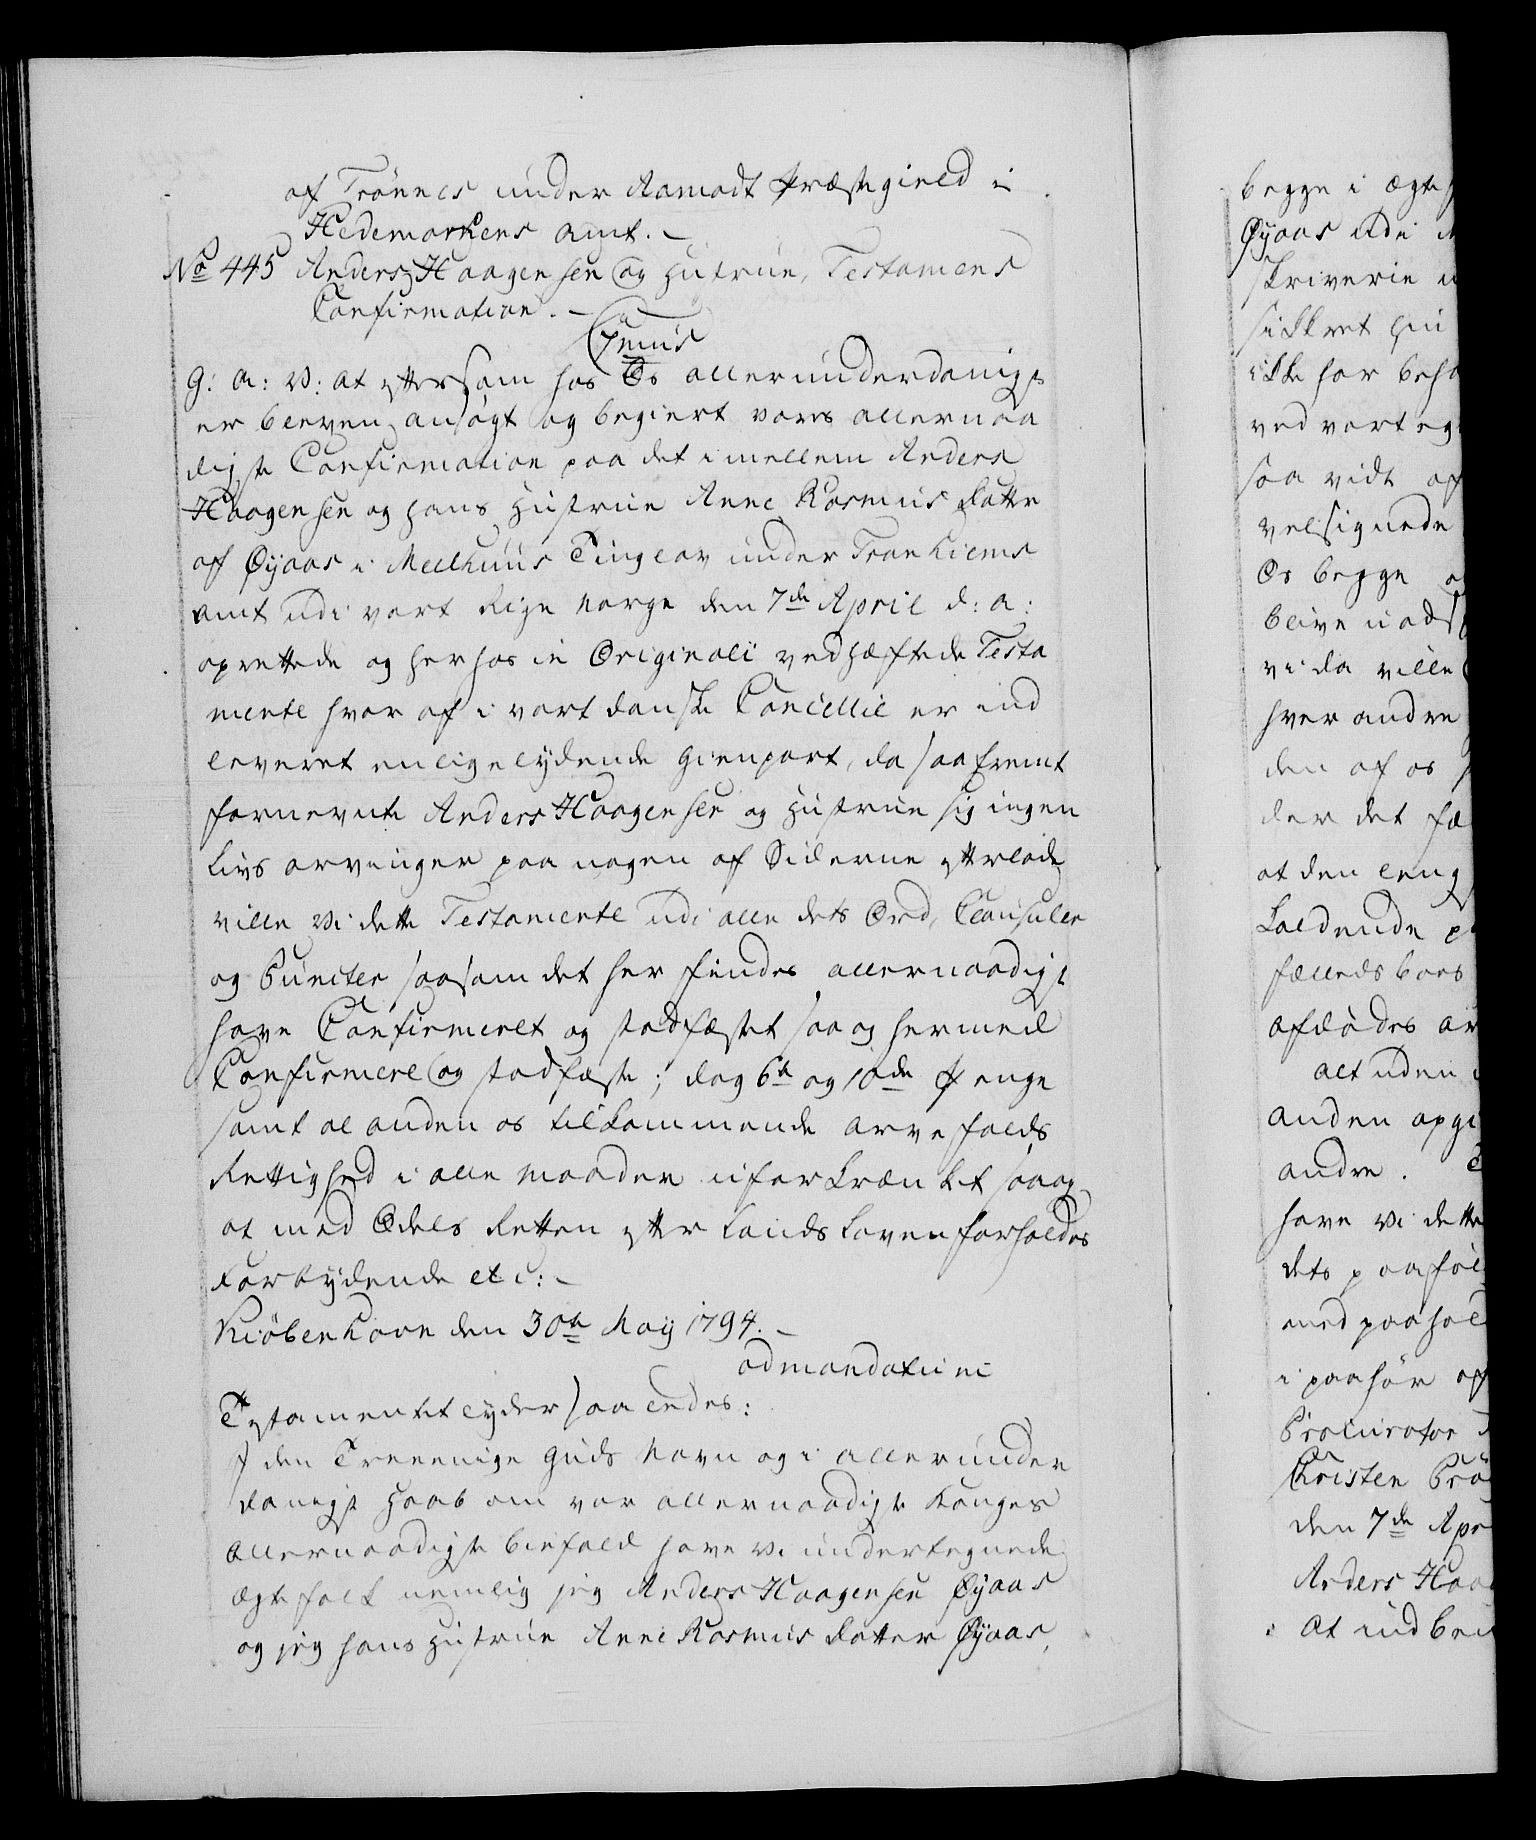 af Trönnes under Aamodt Præstegield i
Hedemarkens Amt. –
No 445 Anders Haagensen og Hustrue, Testamens
Confirmation. –
Genus
G: A: V: at eftersom hos Os allerunderdanigst
er bleven ansøgt og begiert vores allernaa
digste Confirmation paa det imellem Anders
Haagensen og hans Hustrue Anne Rasmus datter
af Öÿaas i Meelhuus Tinglav under Tronhiems
Amt udi vort Rige Norge den 7de April d: a:
oprettede og herhos in Originali vedhæftede Testa
mente hvor af i vort danske Cancellie er ind
leveret en ligelÿdende Gienpart, da saafremt
fornevnte Anders Haagensen og Hustrue sig ingen
Livs arvinger paa nogen af Siderne efterlade
ville Vi dette Testamente udi alle dets Ord, Clausuler
og Puncter saasom det her findes allernaadigst
have Confirmeret og stadfæstet saa og hermed
Confirmere og stadfæste; dog 6te og 10de Penge
samt al anden os tilkommende arve falds
Rettighed i alle Maader uforkrænket saa og
at med Odels Retten efter Lands Loven forholdes
Forbÿdende etc: –
Kiöbenhavn den 30te Maÿ 1794. –
ad mandatum
Testamentet lyder saaledes:
I den Treeenige Guds Navn og i allerunder
danigst Haab om vor allernaadigste Konges
Allernaadigste biefald have Vi undertegnede
Ægtefolk nemlig jeg Anders Haagensen Öÿaas
og jeg hans Hustrue Anne Rasmus datter Öÿaas,
begge i Ægte
Öÿaas udi
Skriverie
sikkret
ikke har
ved vort
saa vidt af
velsignede
Os begge
blive
vi da ville
hver andre
den af os
der det
at den leng
Laldende
fælleds boes
afdødes
alt uden
anden
andre.
have Vi dette
dets
med paa
i paahør af
Procurator
Christen
den 7de Apr
Anders Haa
At ind